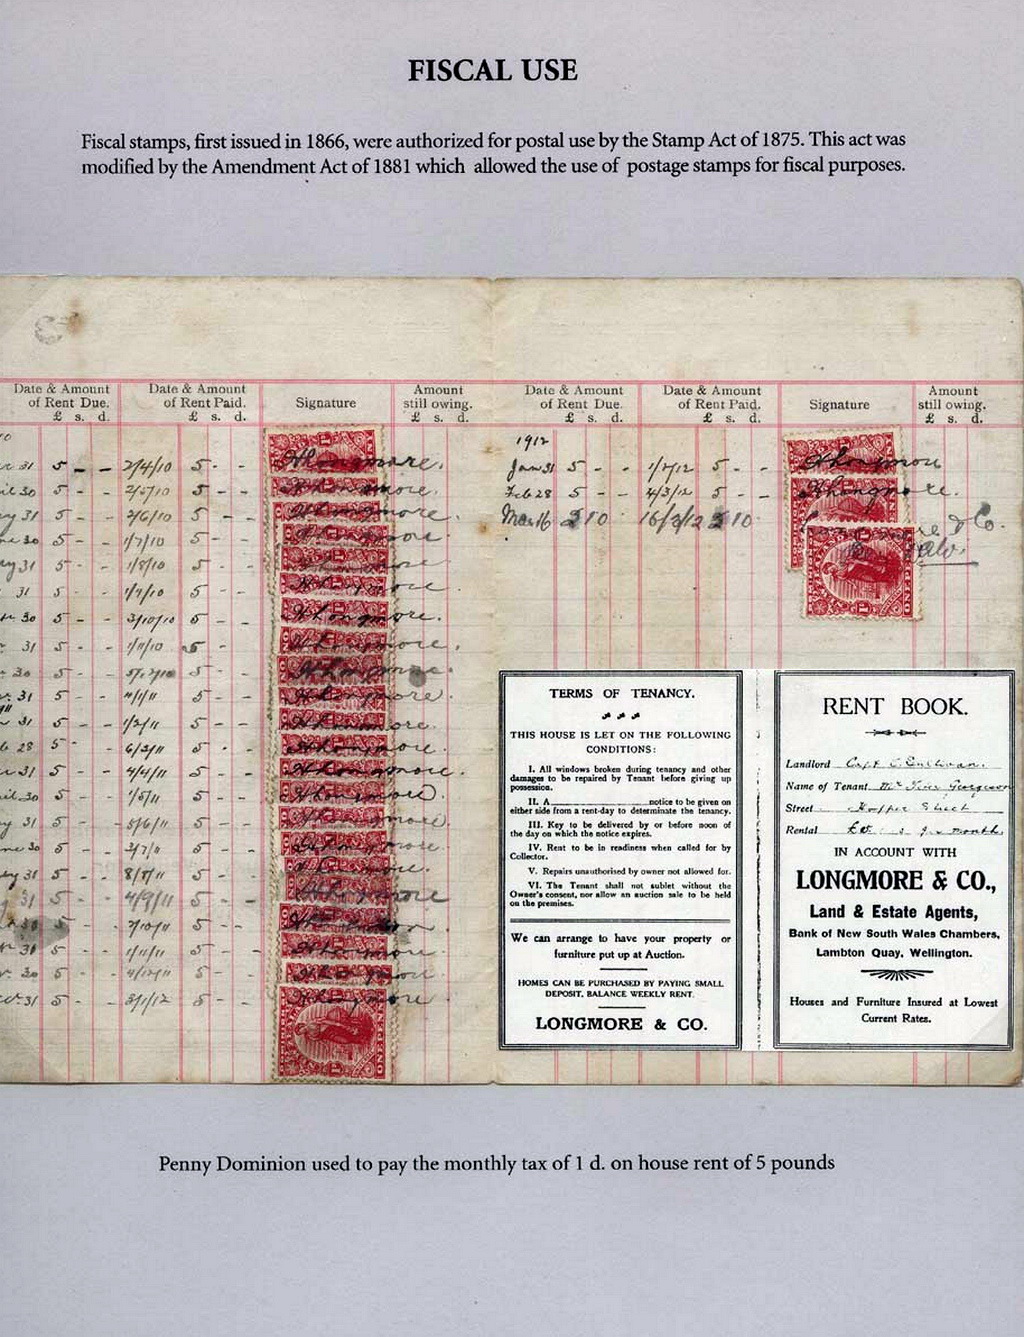 FISCAL USE
Fiscal stamps, first issued in 1866, were authorized for postal use by the Stamp Act of 1875. This act was
modified by the Amendment Act of 1881 which allowed the use of postage stamps for fiscal purposes.
Date & Amount of Rent Due. £ s. d.
Date & Amount of Rent Paid. £ s. d.
Signature
Amount still owing. £ s. d.
Date & Amount of Rent Due. £ s. d.
Date & Amount of Rent Paid. £ s. d.
Signature
Amount still owing. £ s. d.
31 5 - - 2/4/10 5 - - Longmore.
30 5 - - 2/5/10 5 - -
31 5 - - 2/6/10 5 - -
30 5 - - 1/7/10 5 - -
31 5 - - 1/8/10 5 - -
31 5 - - 5 - -
30 5 - - 3/10/10 5 - -
31 5 - - 1/11/10 5 - -
30 5 - - 5 - -
31 5 - - 5 - -
31 5 - - 1/2/11 5 - -
28 5 - 6/3/11 5 - -
31 5 - - 4/4/11 5 - -
30 5 - - 1/5/11 5 - -
31 5 - - 5/6/11 5 - -
30 5 - - 3/7/11 5 - -
31 5 - - 8/8/11 5 - -
31 5 - - 4/9/11 5 - -
5 - - 2/10/11 5 - -
31 5 - - 1/11/11 5 - -
30 5 - - 4/12/11 5 - -
31 5 - 3/1/12 5 - -
1912
Jan 31 5 - - 5 - -
Feb 28 5 - - 4/3/12 5 - -
Mar 16 2 10 16/3/12 2 10 & Co.
TERMS OF TENANCY.
THIS HOUSE IS LET ON THE FOLLOWING
CONDITIONS:
I. All windows broken during tenancy and other
damages to be repaired by Tenant before giving up
possession.
II. A notice to be given on
either side from a rent-day to determine the tenancy.
III. Key to be delivered by or before noon of
the day on which the notice expires.
IV. Rent to be in readiness when called for by
Collector.
V. Repairs unauthorised by owner not allowed for.
VI. The Tenant shall not sublet without the
Owner's consent, nor allow an auction sale to be held
on the premises.
We can arrange to have your property or
furniture put up at Auction.
HOMES CAN BE PURCHASED BY PAYING SMALL
DEPOSIT, BALANCE WEEKLY RENT.
LONGMORE & CO.
RENT BOOK.
Landlord Capt
Name of Tenant
Street Hopper Street
Rental a month
IN ACCOUNT WITH
LONGMORE & CO.,
Land & Estate Agents,
Bank of New South Wales Chambers,
Lambton Quay, Wellington.
Houses and Furniture Insured at Lowest
Current Rates.
Penny Dominion used to pay the monthly tax of 1 d. on house rent of 5 pounds